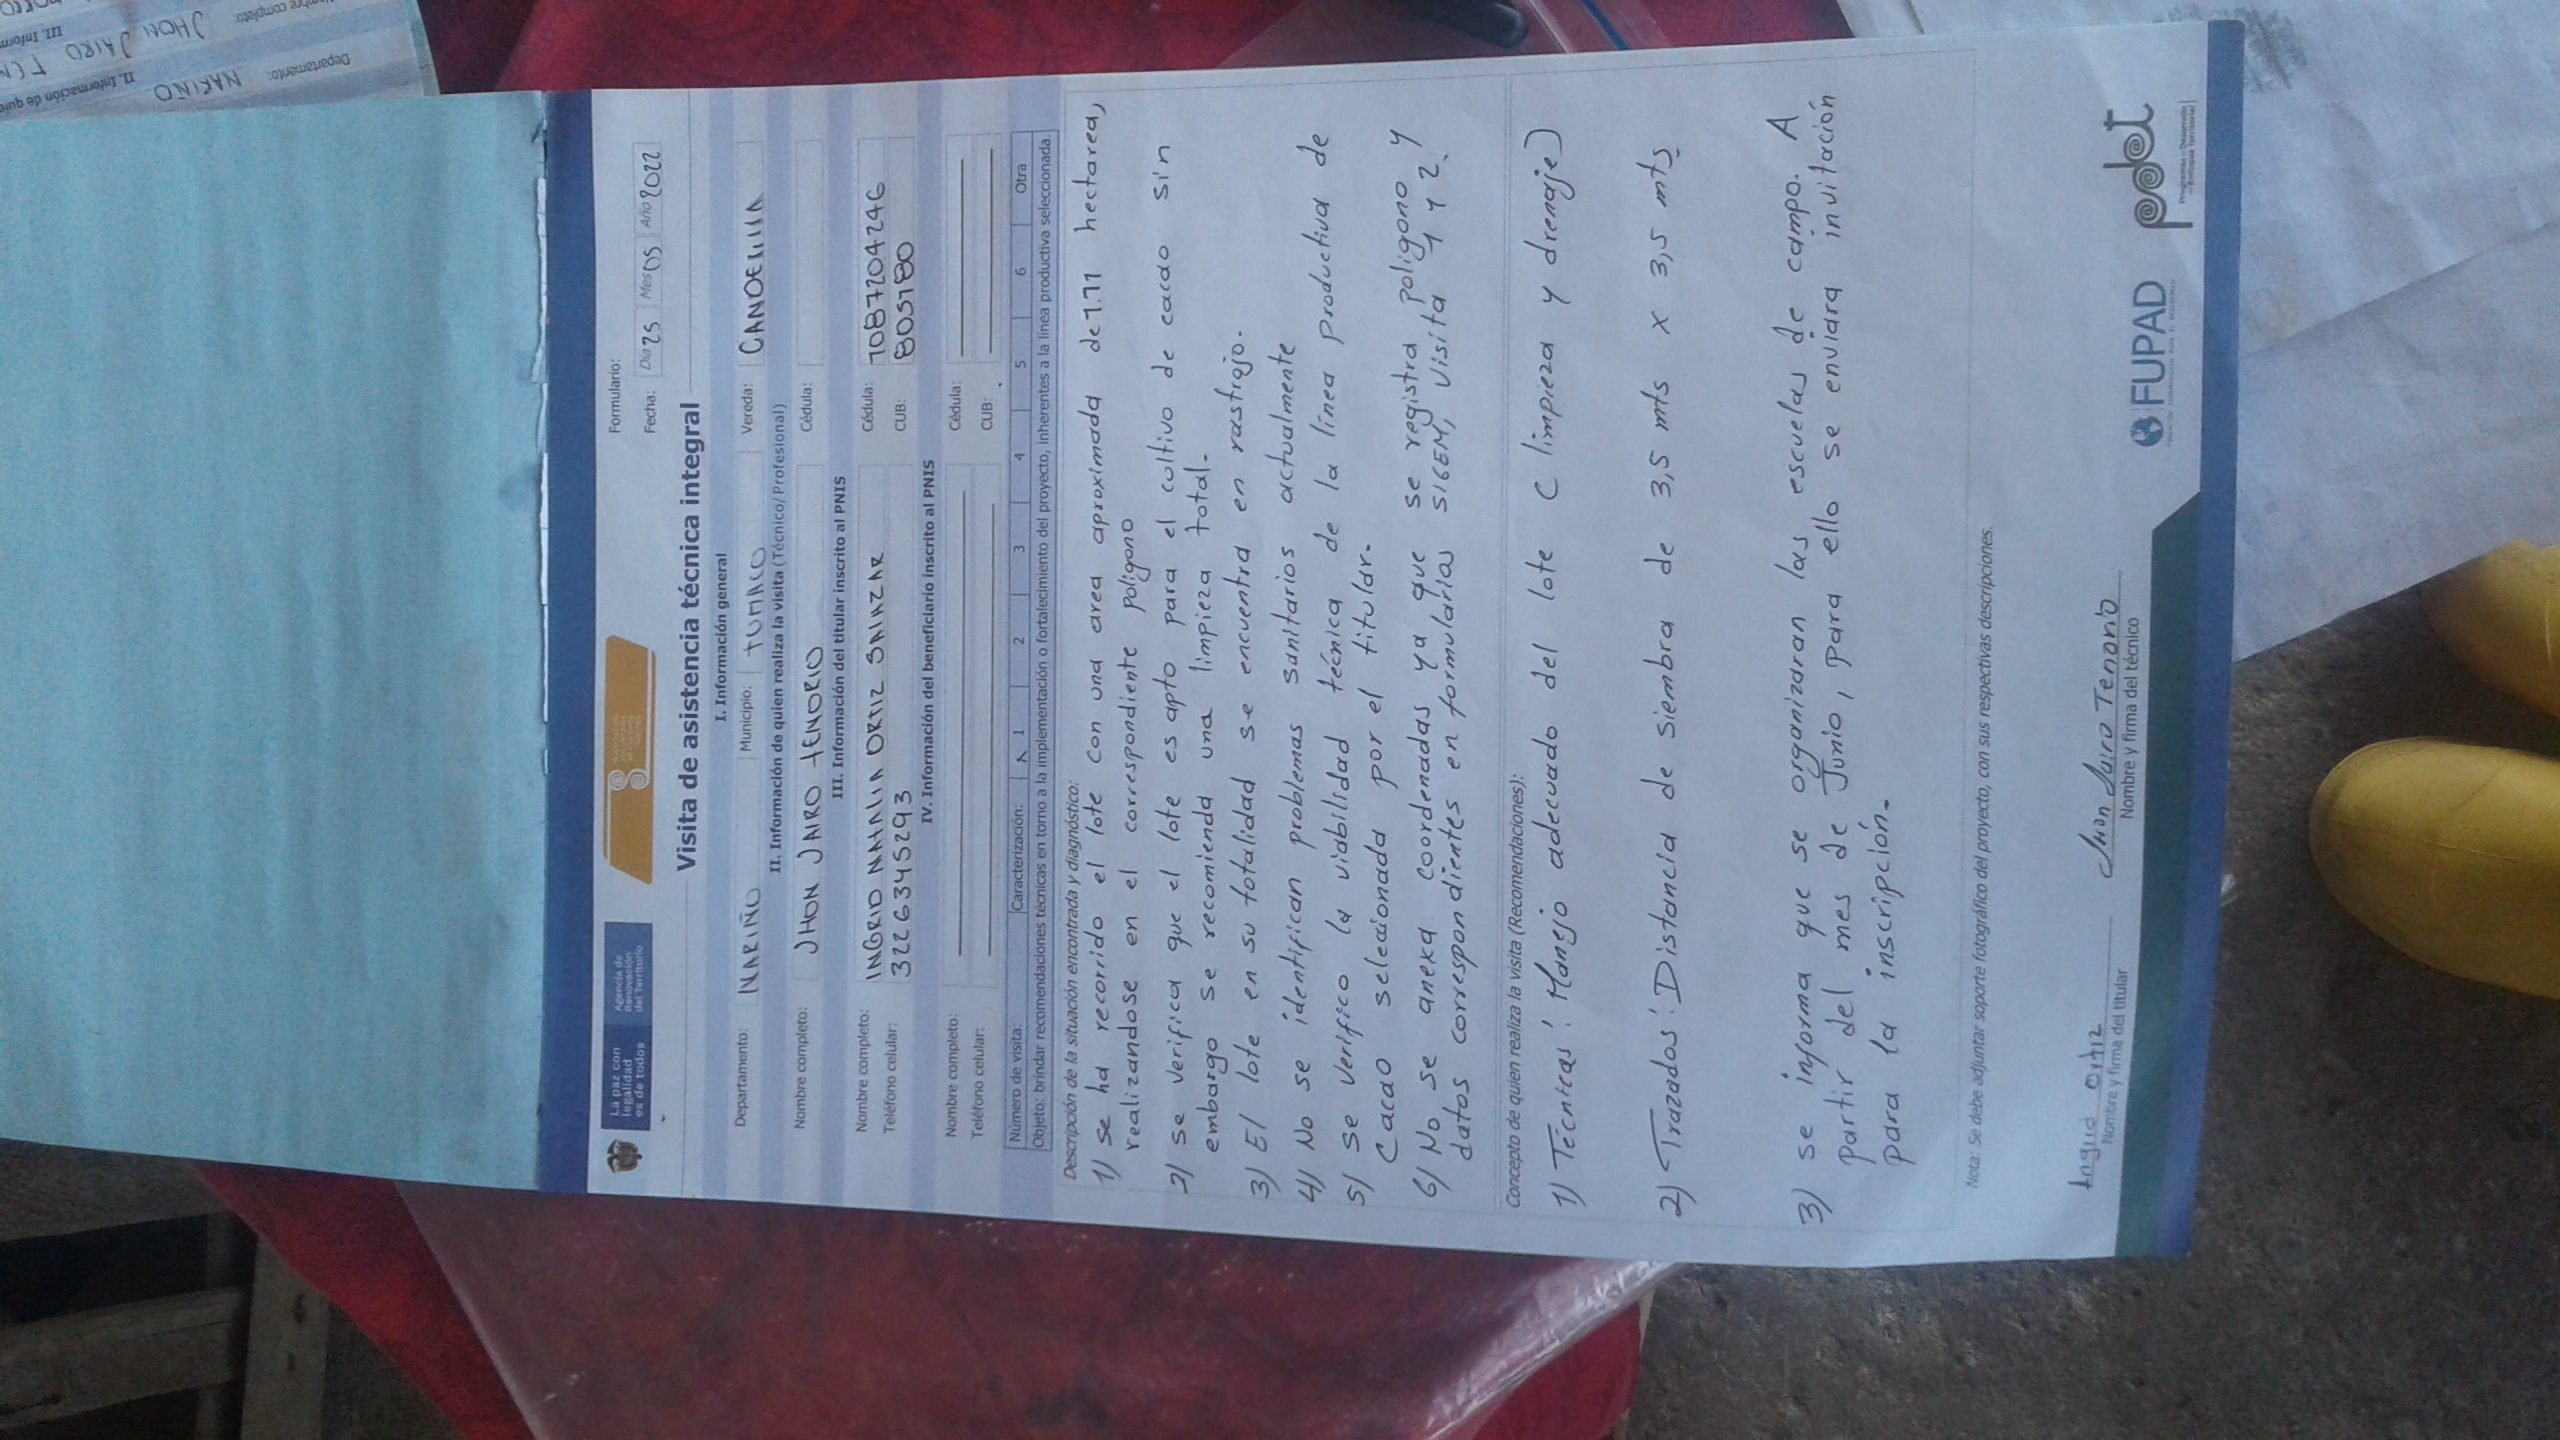 La paz con
legalidad
es de todos
Agencia de
Renovación
del Territorio
Formulario:
Fecha: Día 25 Mes 05 Año 2022
Visita de asistencia técnica integral
I. Información general
Departamento: NARIÑO Municipio: TUMACO Vereda: CANDELILLA
II. Información de quien realiza la visita (Técnico/Profesional)
Nombre completo: JHON JAIRO TENORIO Cédula:
III. Información del titular inscrito al PNIS
Nombre completo: INGRID NATALIA ORTIZ SALAZAR Cédula: 1087204246
Teléfono celular: 3226345293 CUB: 805780
IV. Información del beneficiario inscrito al PNIS
Nombre completo: Cédula:
Teléfono celular: CUB:
Número de visita: Caracterización: 1 2 3 4 5 6 Otra
Objeto: brindar recomendaciones técnicas en torno a la implementación o fortalecimiento del proyecto, inherentes a la línea productiva seleccionada.
Descripción de la situación encontrada y diagnóstico:
1) se ha recorrido el lote con una area aproximada de 1.11 hectarea,
realizandose en el correspondiente poligono
2) se verifica que el lote es apto para el cultivo de cacao sin
embargo se recomienda una limpieza total.
3) El lote en su totalidad se encuentra en rastrojo.
4) No se identifican problemas sanitarios actualmente
5) se verifico la viabilidad técnica de la línea productiva de
Cacao seleccionada por el titular.
6) No se anexa coordenadas ya que se registra poligono y
datos correspondientes en formularios SIGEM, visita 1 y 2.
Concepto de quien realiza la visita (Recomendaciones):
1) Técnicas: Manejo adecuado del lote C limpieza y drenaje)
2) Trazados: Distancia de siembra de 3,5 mts x 3,5 mts
3) se informa que se organizaran las escuelas de campo. A
partir del mes de Junio, para ello se enviara invitación
para la inscripción.
Nota: Se debe adjuntar soporte fotográfico del proyecto, con sus respectivas descripciones.
Ingrid Ortiz
Nombre y firma del titular
Jhon Jairo Tenorio
Nombre y firma del técnico
FUPAD
pdet
Programas de Desarrollo
con Enfoque Territorial
Departamento: NARIÑO
II. Información de quie
Nombre completo: JHON JAIRO TEN
III. Inform